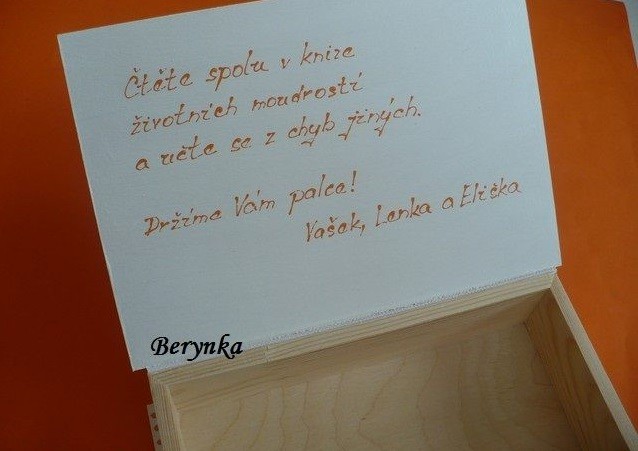 Čtěte spolu v knize
životních moudrostí
a učte se z chyb jiných.
Držíme Vám palce!
Vašek, Lenka a Eliška
Berynka